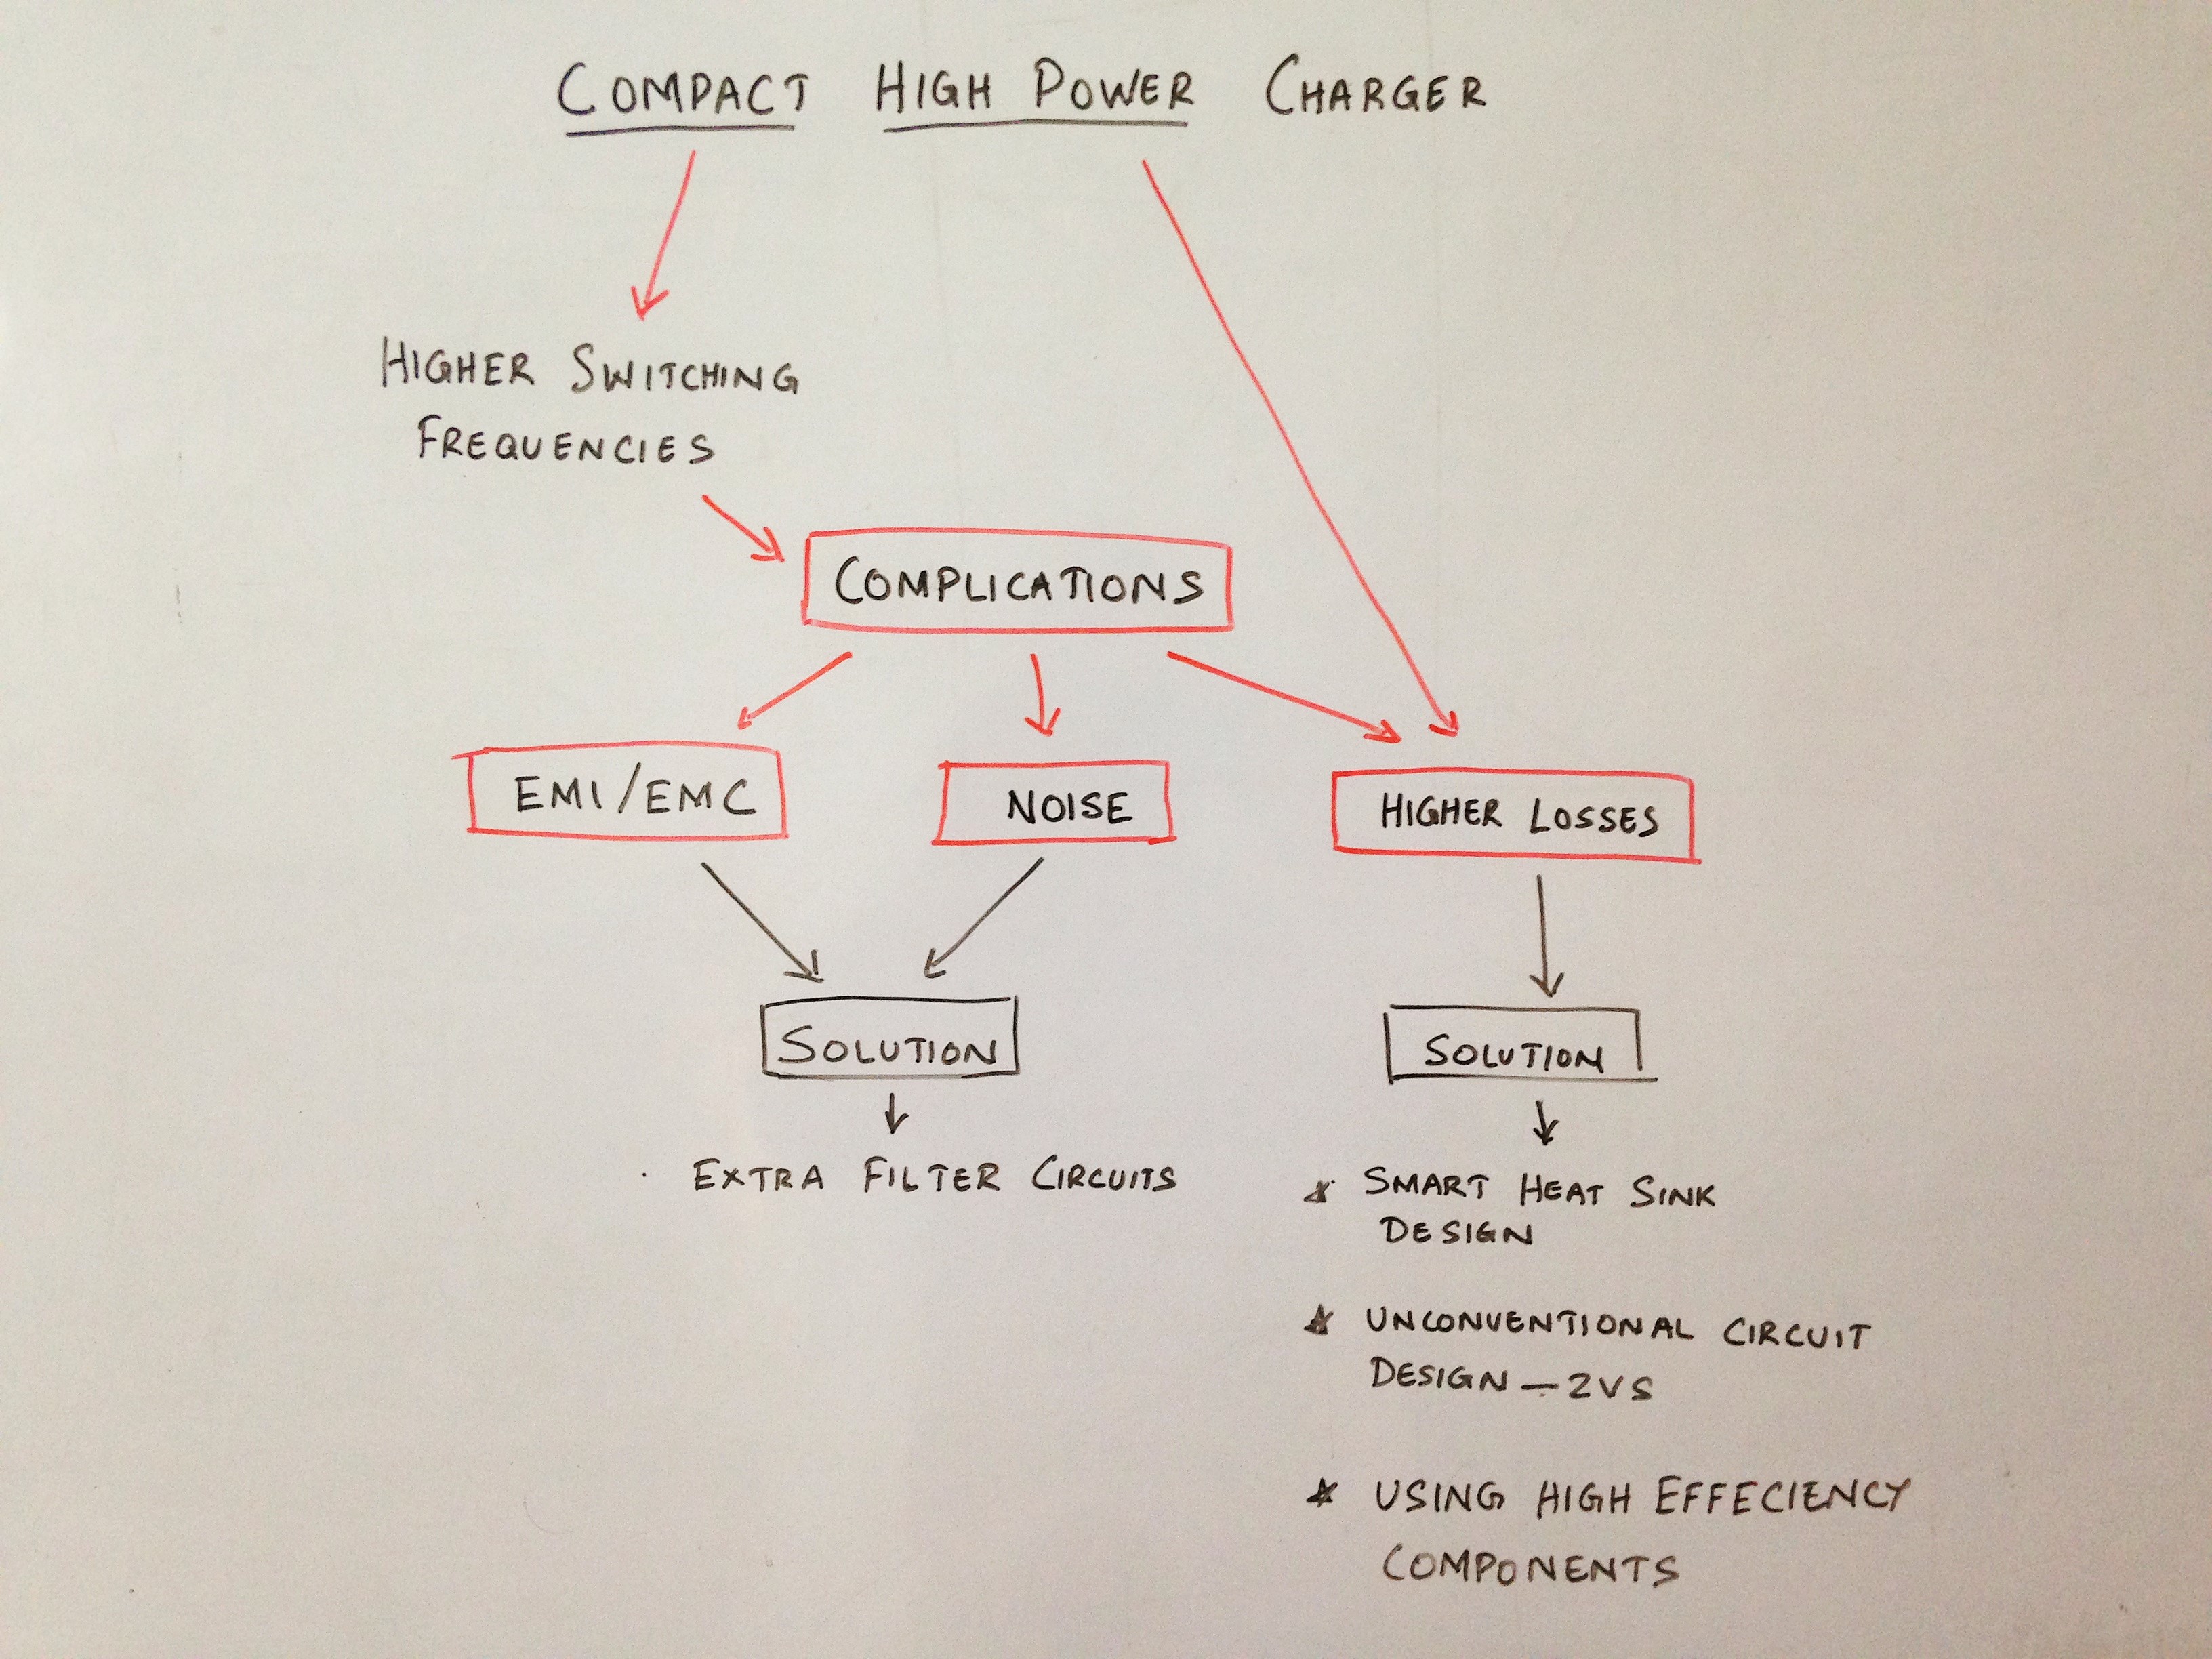 COMPACT HIGH POWER CHARGER
HIGHER SWITCHING
FREQUENCIES
COMPLICATIONS
EMI/EMC
NOISE
HIGHER LOSSES
SOLUTION
SOLUTION
EXTRA FILTER CIRCUITS
* SMART HEAT SINK
DESIGN
* UNCONVENTIONAL CIRCUIT
DESIGN - ZVS
* USING HIGH EFFECIENCY
COMPONENTS